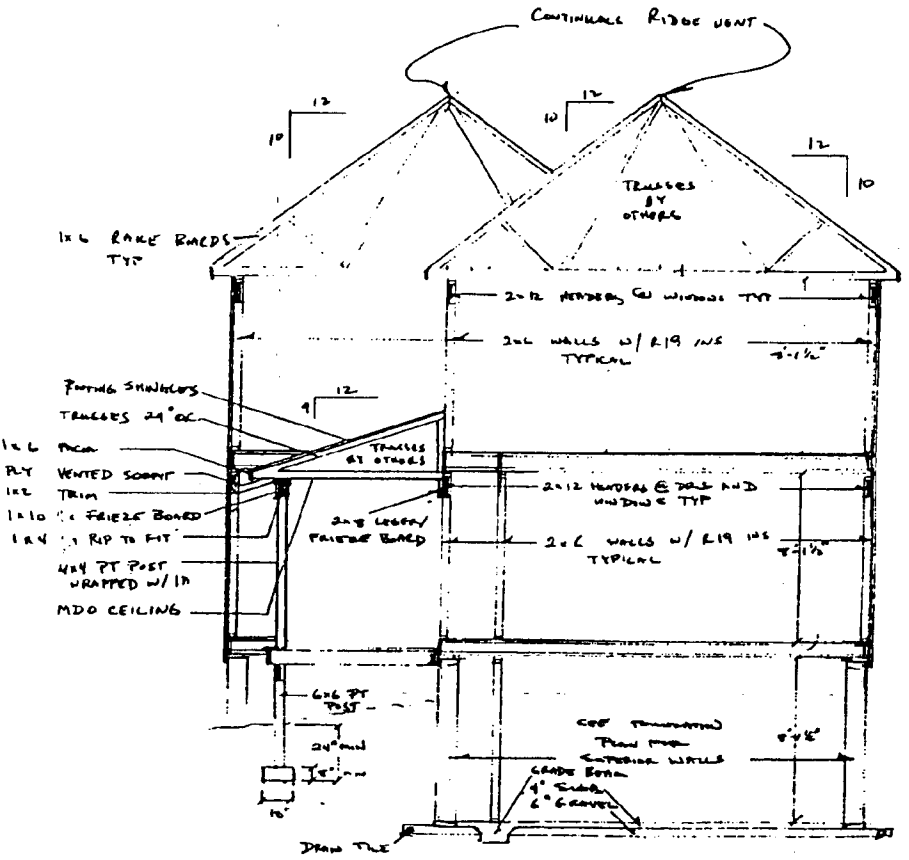 CONTINUOUS RIDGE VENT
12
10
12
10
12
10
TRUSSES
BY
OTHERS
1x6 RAKE BOARDS
TYP
2x12 HEADERS @ WINDOW TYP
2x6 WALLS W/ R19 INS
TYPICAL
8'-1 1/2"
ROOFING SHINGLES
12
9
TRUSSES 24" OC
TRUSSES
BY OTHERS
1x6 FACIA
PLY VENTED SOFFIT
1x2 TRIM
1x10 FRIEZE BOARD
1x4 RIP TO FIT
2x8 LEDGER/
FRIEZE BOARD
2x12 HEADERS @ DRS AND
WINDOWS TYP
2x6 WALLS W/ R19 INS
TYPICAL
8'-1 1/2"
4x4 PT POST
WRAPPED W/
MDO CEILING
6x6 PT
POST
24" MIN
8" MIN
SEE FOUNDATION
PLAN FOR
EXTERIOR WALLS
GRADE BEAM
4" SLAB
6" GRAVEL
DRAIN TILE